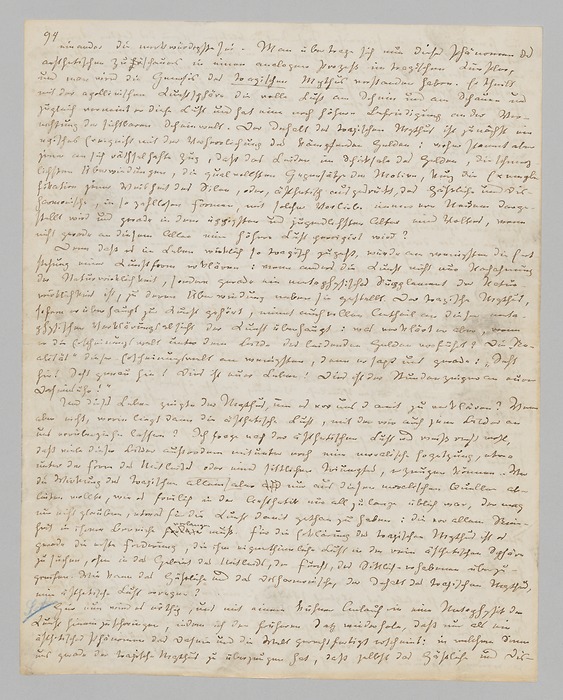 94
einander die merkwürdigste sei. Man übertrage sich nun dieses Phänomen des
aesthetischen Zuschauers in einen analogen Prozeß im tragischen Künstler,
und man wird die Genesis des tragischen Mythus verstanden haben. Er theilt
mit der apollinischen Kunstsphäre die volle Lust am Schein und am Schauen und
zugleich verneint er diese Lust und hat eine noch höhere Befriedigung an der Ver-
nichtung der sichtbaren Scheinwelt. Der Inhalt des tragischen Mythus ist zunächst ein
episches Ereigniß mit der Verherrlichung des kämpfenden Helden: woher stammt aber
jener an sich räthselhafte Zug, daß das Leiden im Schicksale des Helden, die schmerz-
lichsten Überwindungen, die qualvollsten Gegensätze der Motive, kurz die Exempli-
fikation jener Weisheit des Silen, oder, ästhetisch ausgedrückt, das Häßliche und Dis-
harmonische, in so zahllosen Formen, mit solcher Vorliebe immer von Neuem darge-
stellt wird und gerade in dem üppigsten und jugendlichsten Alter eines Volkes, wenn
nicht gerade an diesem Allen eine höhere Lust percipirt wird?
Denn daß es im Leben wirklich so tragisch zugeht, würde am wenigsten die Ent-
stehung einer Kunstform erklären: wenn anders die Kunst nicht nur Nachahmung
der Naturwirklichkeit, sondern gerade ein metaphysisches Supplement der Natur-
wirklichkeit ist, zu deren Überwindung neben sie gestellt. Der tragische Mythus,
sofern er überhaupt zur Kunst gehört, nimmt auch vollen Antheil an dieser meta-
physischen Verklärungsabsicht der Kunst überhaupt: was verklärt er aber, wenn
er die Erscheinungswelt unter dem Bilde des leidenden Helden vorführt? Die „Rea-
lität“ dieser Erscheinungswelt am wenigsten, denn er sagt uns gerade: „Seht
hin! Seht genau hin! Dies ist euer Leben! Dies ist der Stundenzeiger an eurer
Daseinsuhr!“
Und dieses Leben zeigte der Mythus, um es vor uns damit zu verklären? Wenn
aber nicht, worin liegt dann die ästhetische Lust, mit der wir auch jene Bilder an
uns vorüberziehen lassen? Ich frage nach der ästhetischen Lust und weiß recht wohl,
daß viele dieser Bilder außerdem mitunter noch eine moralische Ergetzung, etwa
unter der Form des Mitleides oder eines sittlichen Triumphes, erzeugen können. Wer
die Wirkung des Tragischen allein aber nur aus diesen moralischen Quellen ab-
leiten wollte, wie es freilich in der Aesthetik nur allzu lange üblich war, der mag
nur nicht glauben, etwas für die Kunst damit gethan zu haben: die vor allem Rein-
heit in ihrem Bereiche verlangen muß. Für die Erklärung des tragischen Mythus ist es
gerade die erste Forderung, die ihm eigenthümliche Lust in der rein ästhetischen Sphäre
zu suchen, ohne in das Gebiet des Mitleids, der Furcht, des Sittlich-Erhabenen überzu-
greifen. Wie kann das Häßliche und das Disharmonische, der Inhalt des tragischen Mythus,
eine ästhetische Lust erregen?
Hier nun wird es nöthig, uns mit einem kühnen Anlauf in eine Metaphysik der
Kunst hinein zu schwingen, indem ich den früheren Satz wiederhole, daß nur als ein
ästhetisches Phänomen das Dasein und die Welt gerechtfertigt erscheint: in welchem Sinne
uns gerade der tragische Mythus zu überzeugen hat, daß selbst das Häßliche und Dis-